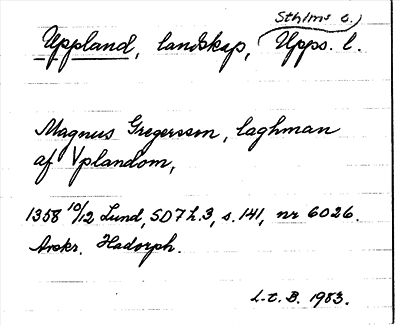 Sthlms o.
Uppland, landskap, Upps. l.
Magnus Gregersson, laghman
af Vplandom,
1358 10/12 Lund, SD7 h.3, s. 141, nr 6026.
Avskr. Hadorph.
L-e. B. 1983.